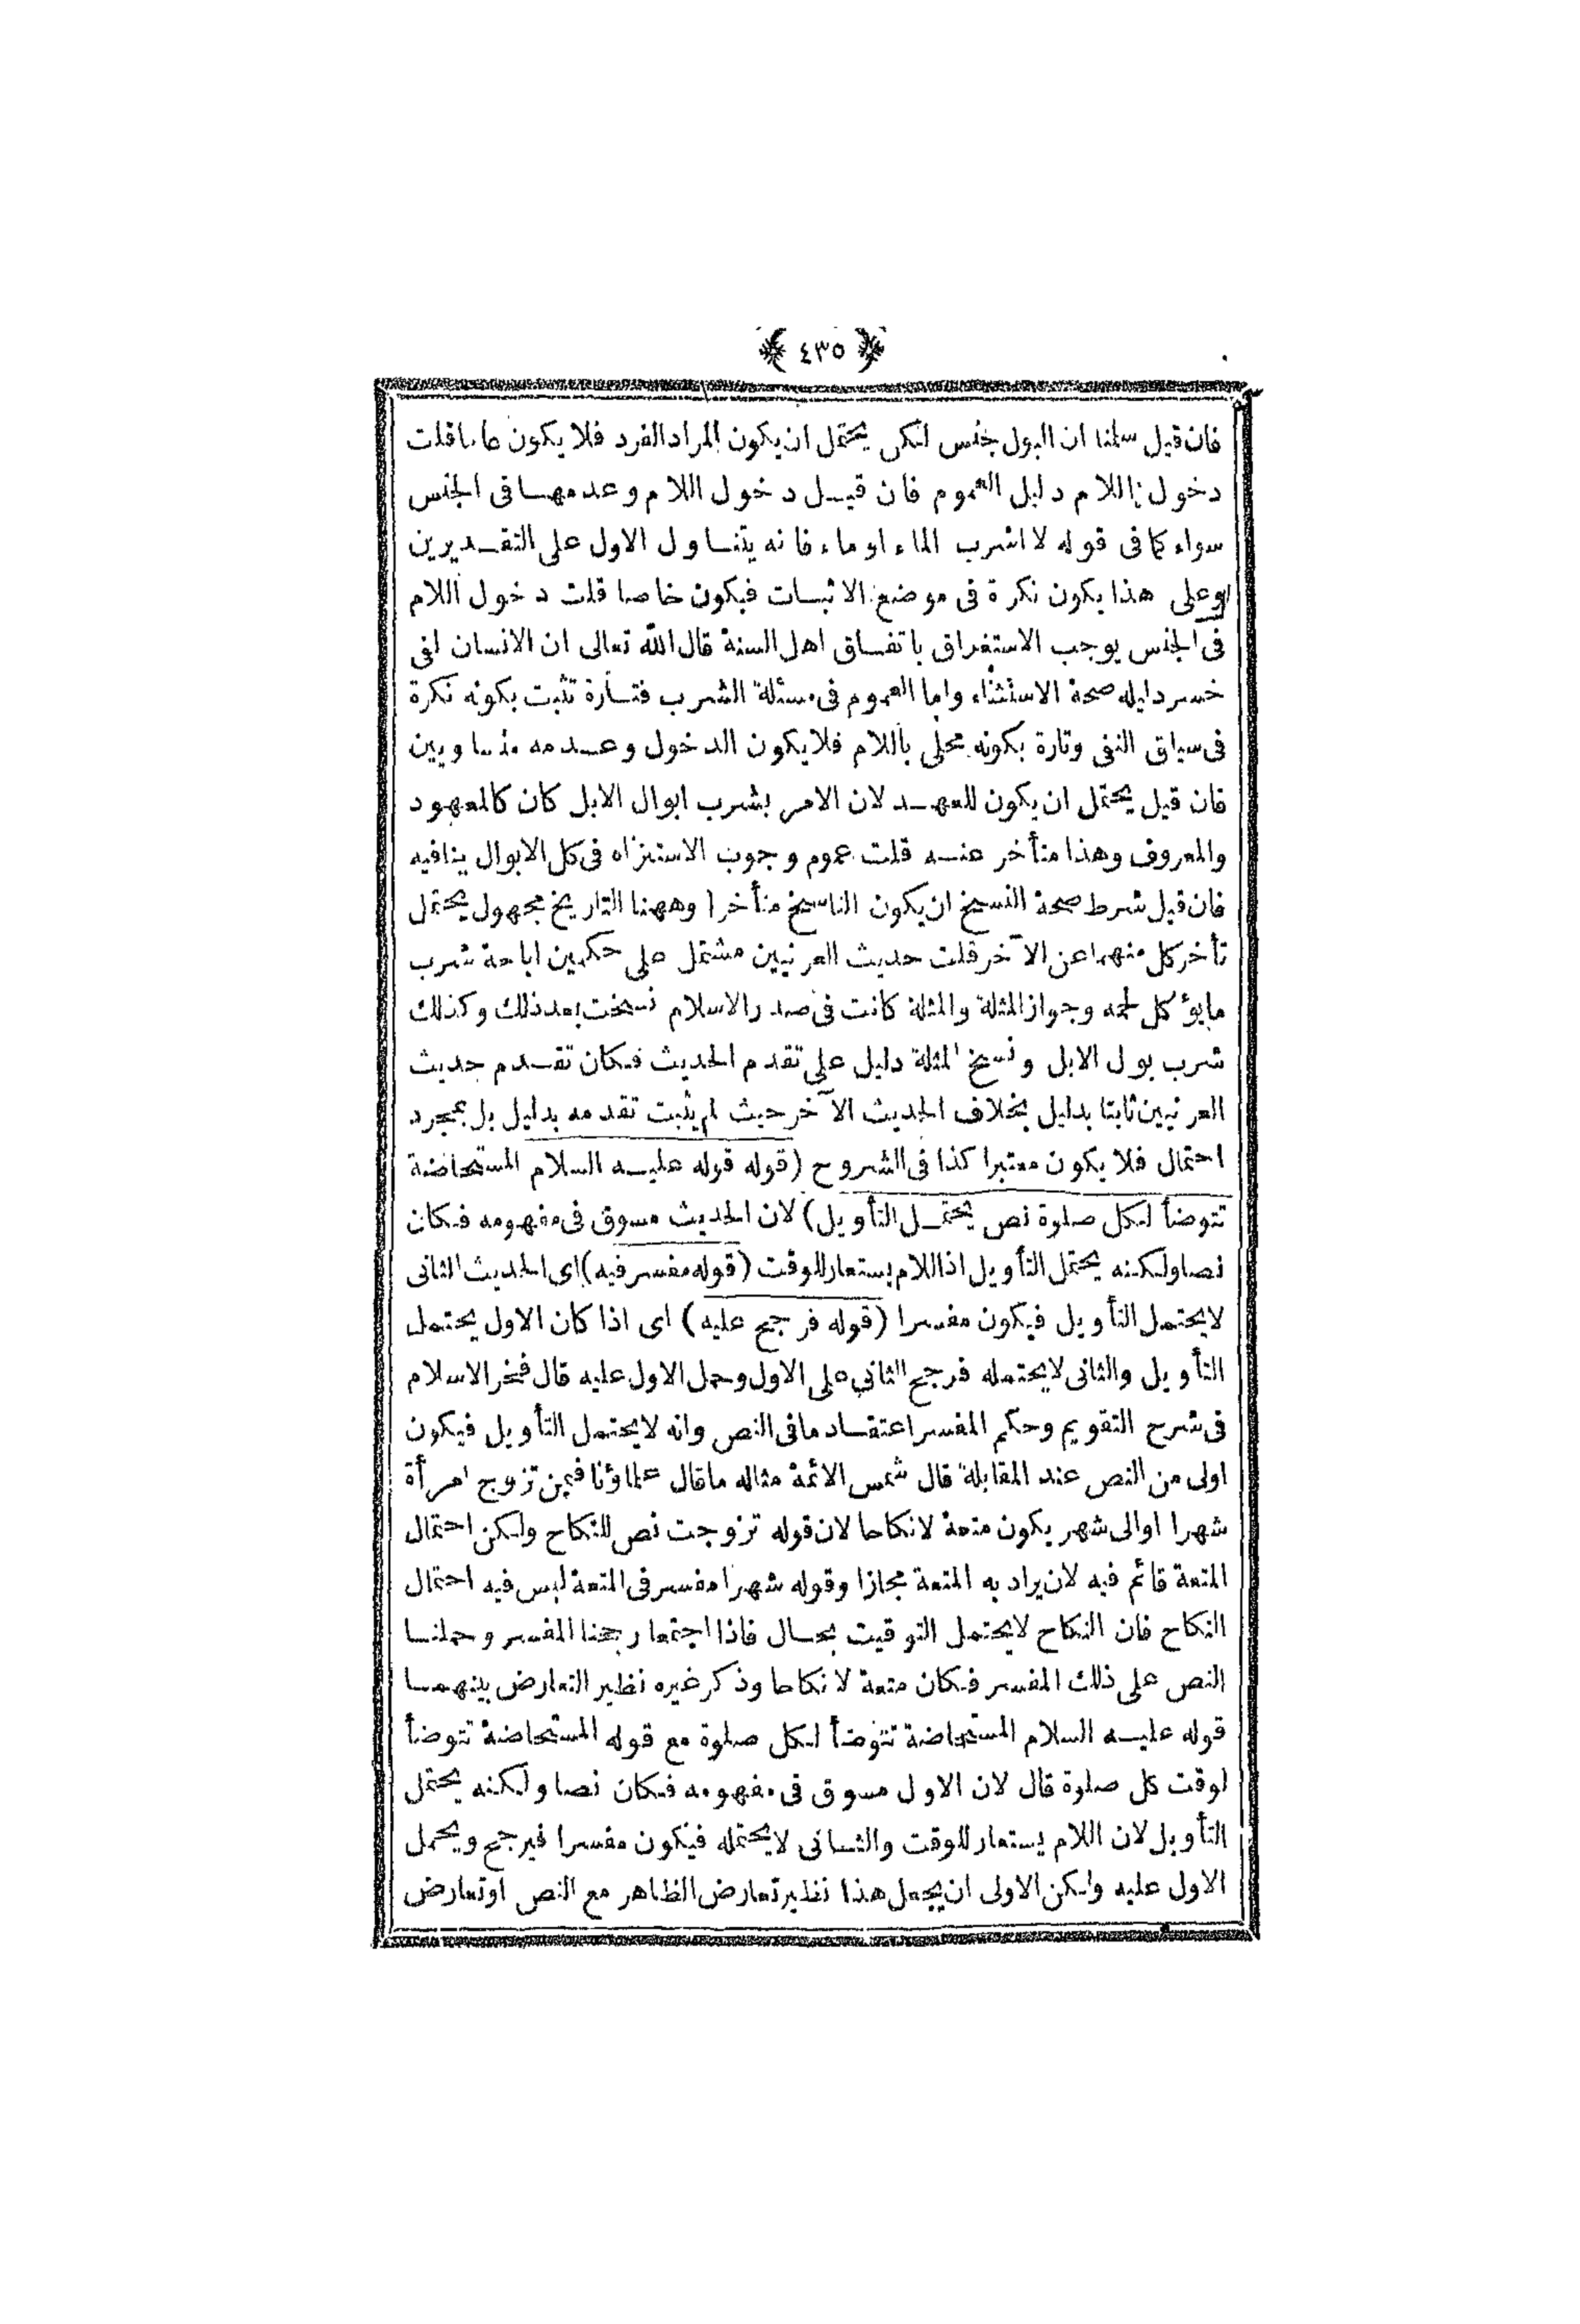 ﴿ ٤٣٥ ﴾
فان قيل سلمنا ان البول جنس لكن يحتمل ان يكون المراد الفرد فلا يكون عاما قلت
دخول اللام دليل العموم فان قيل دخول اللام وعدمها فى الجنس
سواء كما فى قوله لا اشرب الماء او ماء فانه يتناول الاول على التقديرين
وعلى هذا يكون نكرة فى موضع الاثبات فيكون خاصا قلت دخول اللام
فى الجنس يوجب الاستغراق باتفاق اهل السنة قال الله تعالى ان الانسان لفى
خسر دليله صحة الاستثناء واما العموم فى مسئلة الشرب فتارة تثبت بكونه نكرة
فى سياق النفى وتارة بكونه محلى باللام فلا يكون الدخول وعدمه متساويين
فان قيل يحتمل ان يكون للعهد لان الامر بشرب ابوال الابل كان كالمعهود
والمعروف وهذا متأخر عنه قلت عموم وجوب الاستنزاه فى كل الابوال ينافيه
فان قيل شرط صحة النسخ ان يكون الناسخ متأخرا وههنا التاريخ مجهول يحتمل
تأخر كل منهما عن الآخر قلت حديث العرنيين مشتمل على حكمين اباحة شرب
مايؤكل لحمه وجواز المثلة والمثلة كانت فى صدر الاسلام نسخت بعد ذلك وكذلك
شرب بول الابل ونسخ المثلة دليل على تقدم الحديث فكان تقدم حديث
العرنيين ثابتا بدليل بخلاف الحديث الآخر حيث لم يثبت تقدمه بدليل بل بمجرد
احتمال فلا يكون معتبرا كذا فى الشروح (قوله قوله عليه السلام المستحاضة
تتوضأ لكل صلوة نص يحتمل التأويل) لان الحديث مسوق فى مفهومه فكان
نصا ولكنه يحتمل التأويل اذ اللام يستعار للوقت (قوله مفسر فيه) اى الحديث الثانى
لايحتمل التأويل فيكون مفسرا (قوله فرجح عليه) اى اذا كان الاول يحتمل
التأويل والثانى لايحتمله فرجح الثانى على الاول وحمل الاول عليه قال فخر الاسلام
فى شرح التقويم وحكم المفسر اعتقاد مافى النص وانه لايحتمل التأويل فيكون
اولى من النص عند المقابلة قال شمس الائمة مثاله ماقال علماؤنا فيمن تزوج امرأة
شهرا او الى شهر يكون متعة لا نكاحا لان قوله تزوجت نص للنكاح ولكن احتمال
المتعة قائم فيه لان يراد به المتعة مجازا وقوله شهرا مفسر فى المتعة ليس فيه احتمال
النكاح فان النكاح لايحتمل التوقيت بحال فاذا اجتمعا رجحنا المفسر وحملنا
النص على ذلك المفسر فكان متعة لا نكاحا وذكر غيره نظير التعارض بينهما
قوله عليه السلام المستحاضة تتوضأ لكل صلوة مع قوله المستحاضة تتوضأ
لوقت كل صلوة قال لان الاول مسوق فى مفهومه فكان نصا ولكنه يحتمل
التأويل لان اللام يستعار للوقت والثانى لايحتمله فيكون مفسرا فيرجح ويحمل
الاول عليه ولكن الاولى ان يجعل هذا نظير تعارض الظاهر مع النص او تعارض